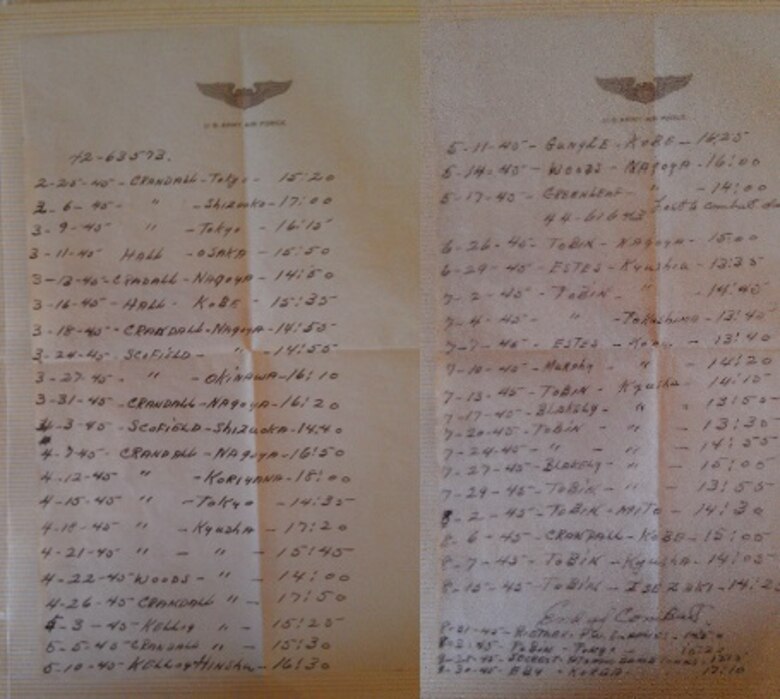 U.S. ARMY AIR FORCE
42-63573.
2-25-45 - CRANDALL - Tokyo - 15:20
3-6-45 - " - Shizuoko - 17:00
3-9-45 - " - Tokyo - 16:15
3-11-45 HALL - OSAKA - 15:50
3-13-45 - CRADALL - NAGOYA - 14:50
3-16-45 - HALL - KoBE - 15:35
3-18-45 - CRANDALL - NAGOYA - 14:55
3-24-45 - SCOFIELD - " - 14:55
3-27-45 - " - OKINAWA - 16:10
3-31-45 - CRANDALL - NAGOYA - 16:20
4-3-45 - SCOFIELD - Shizuoka - 14:40
4-7-45 - CRANDALL - NAGOYA - 16:50
4-12-45 " - KORIYANA - 18:00
4-15-45 " - ToKyo - 14:35
4-18-45 " - Kyusha - 17:20
4-21-45 " - " - 15:45
4-22-45 WOODS - " - 14:00
4-26-45 CRANDALL " - 17:50
5-3-45 - KELLOY " - 15:25
5-5-45 CRANDALL " - 15:30
5-10-45 - KELLOY Hinshu - 16:30
U.S. ARMY AIR FORCE
5-11-45 - KOBE - 16:25
5-14-45 - WOODS - NAGOYA - 16:00
5-17-45 - GREENLEAF - " - 14:00
Lost to combat
6-26-45 - ToBiN - NAGOYA - 15:00
6-29-45 - ESTES - Kyushia - 13:35
7-2-45 - ToBiN - " - 14:45
7-4-45 - " - Tokushima - 13:45
7-7-45 - ESTES - - 13:40
7-10-45 - Murphy - " - 14:20
7-13-45 - ToBiN - Kyusha - 14:15
7-17-45 - Blakely - " - 13:50
7-20-45 - ToBiN - " - 13:30
7-24-45 - " - " - 14:55
7-27-45 - Blakely - " - 15:05
7-29-45 - ToBiN - " - 13:55
8-2-45 - ToBiN - MiTo - 14:30
8-6-45 - CRANDALL - KoBE - 15:05
8-7-45 - ToBiN - Kyusha - 14:05
8-15-45 - ToBiN - ISEZAKI - 14:2
End of Combat
ToBiN - Tokyo
KOREA - 17:10